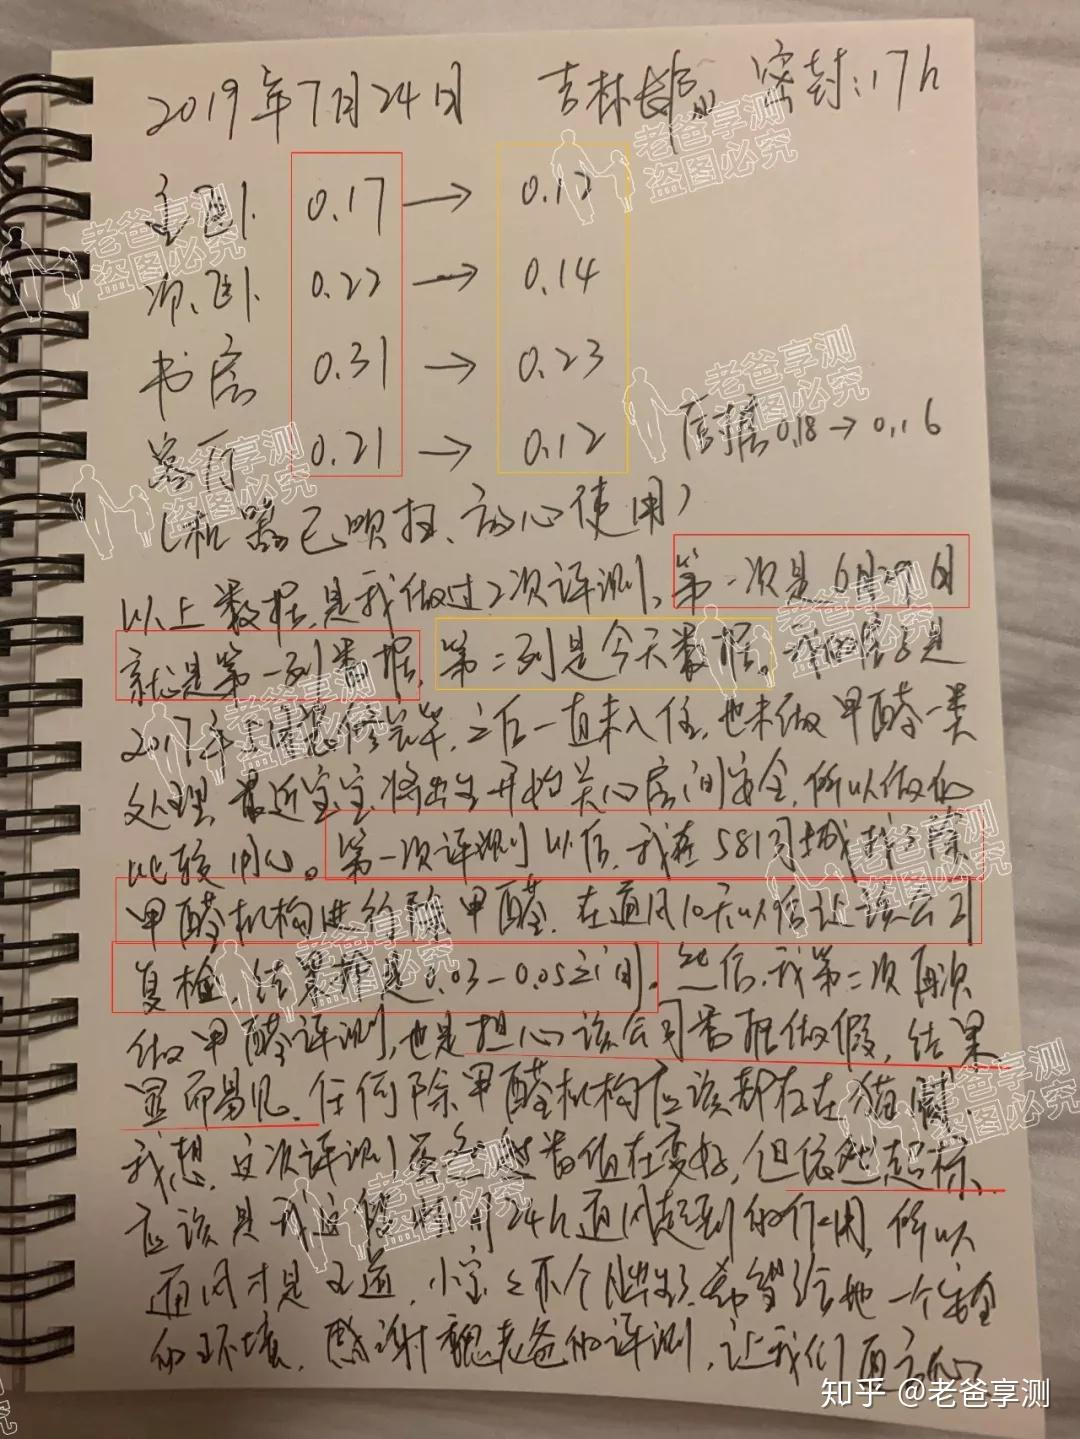 2019年7月24日 吉林长春 密封:17h
主卧 0.17 → 0.12
次卧 0.22 → 0.14
书房 0.31 → 0.23
客厅 0.21 → 0.12 0.18 → 0.16
(机器已吹扫、放心使用)
以上数据,是我做过2次评测,第一次是6月29日
就是第一列数据,第二列是今天数据。我的房子是
2017年 装修完毕,之后一直未入住,也未做甲醛一类
处理,最近宝宝将出生开始关心房间安全,所以做的
比较用心。第一次评测以后,我在58同城找了除
甲醛机构进行除甲醛,在通风10天以后让该公司
复检,结果都是0.03-0.05之间。然后,我第二次再次
做甲醛评测,也是担心该公司数据做假,结果
显而易见,任何除甲醛机构应该都存在猫腻,
我想,这次评测 数值在变好,但依然超标,
应该是我这 24h通风起到的作用,所以
通风才是王道,小宝宝 个月出生了,希望给她一个安全
的环境,感谢魏老爸的评测,让我们更
老爸享测
盗图必究
知乎 @老爸享测